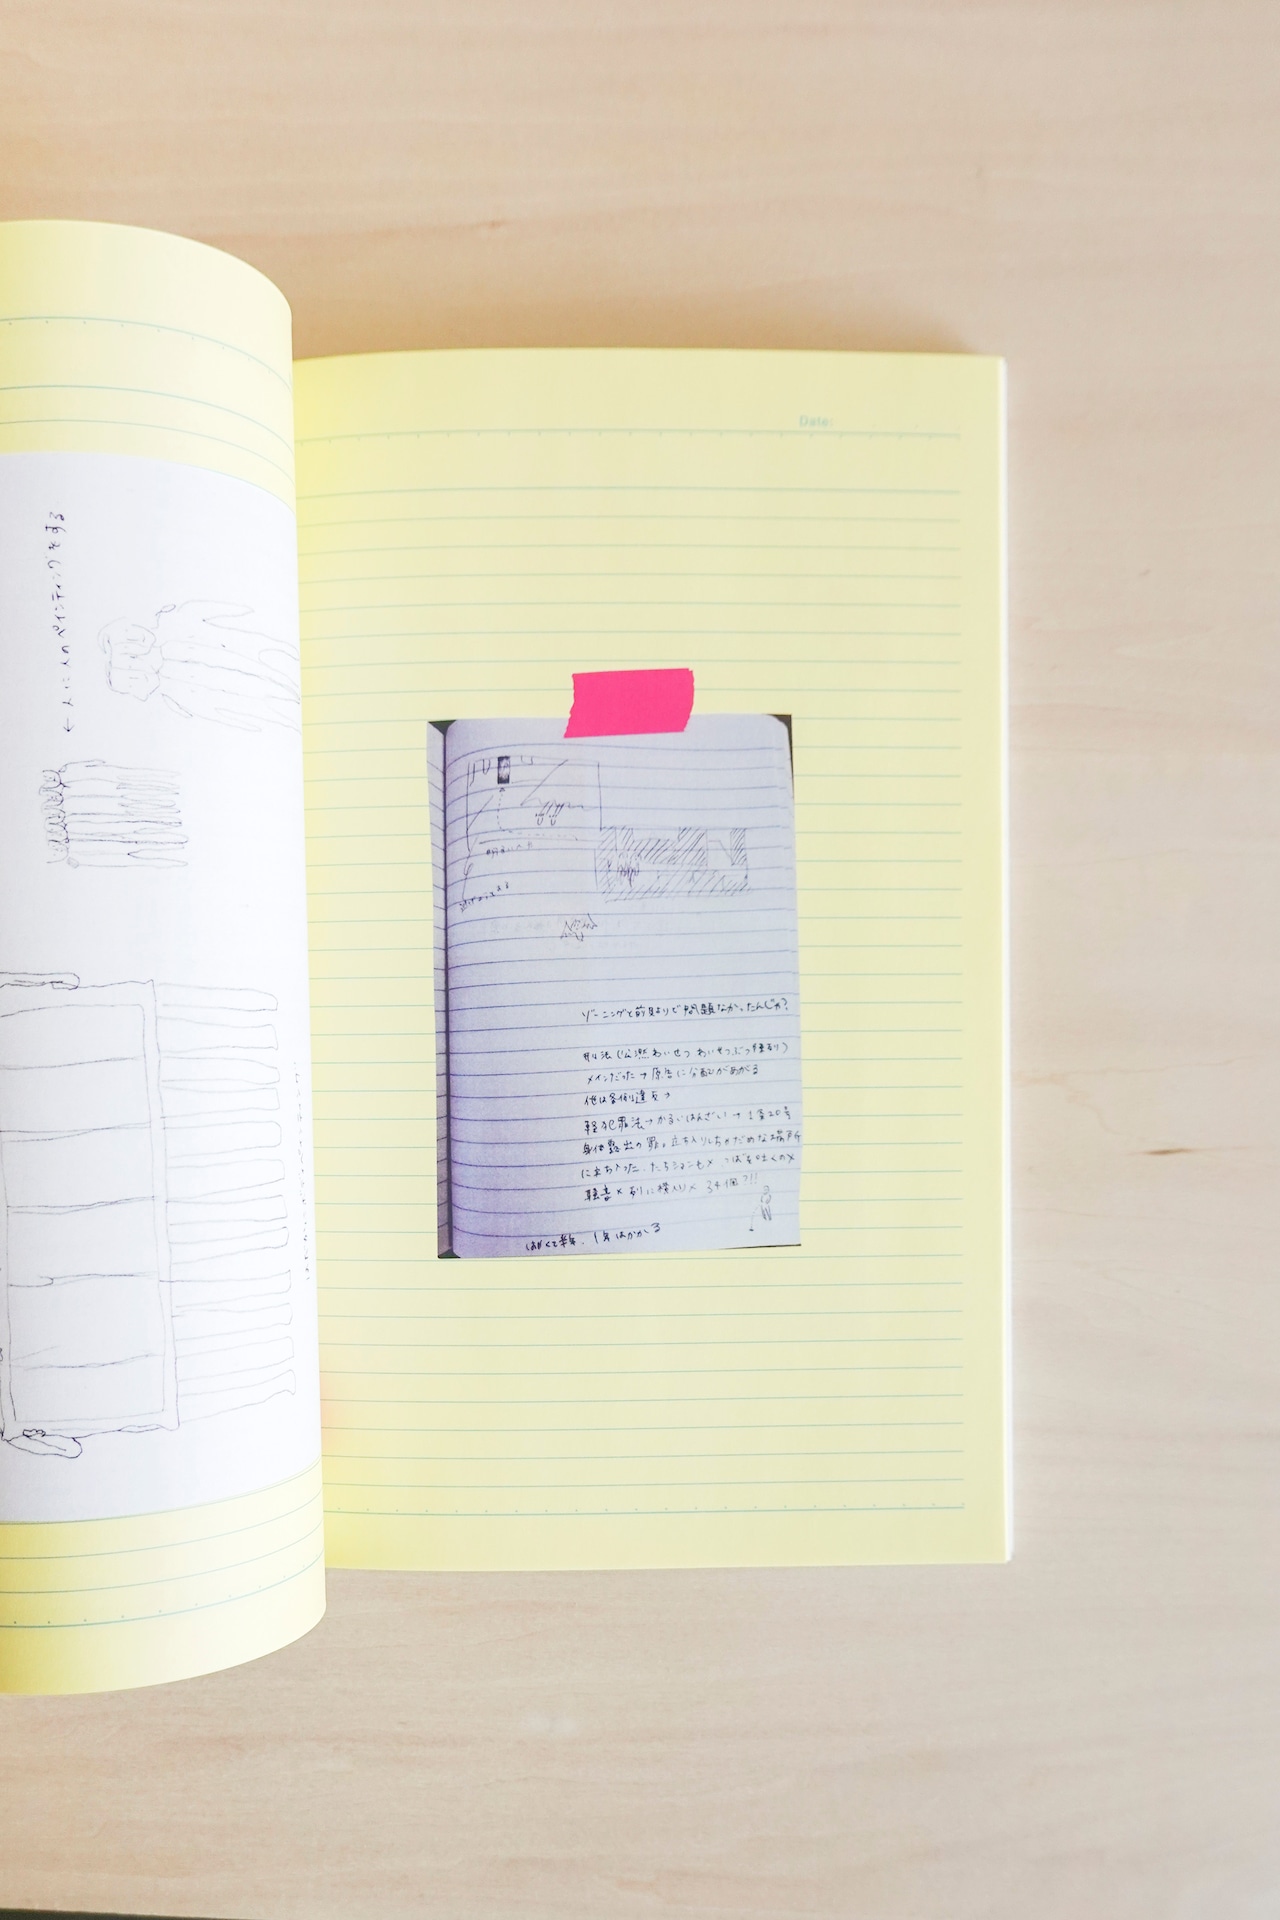 ← 人に人のペインティングをする
Date:
ゾーニングと前貼りで問題なかったんじゃ?
刑法(公然わいせつ わいせつぶつ陳列)
メインだった → 原告に分配があがる
他は条例違反 →
軽犯罪法→かるいはんざい→1条20号
身体露出の罪。立ち入りしちゃだめな場所
に立ち入った、たちションも× つばを吐くの×
騒音× 列に横入り× 34個?!!
はやくて半年、1年はかかる